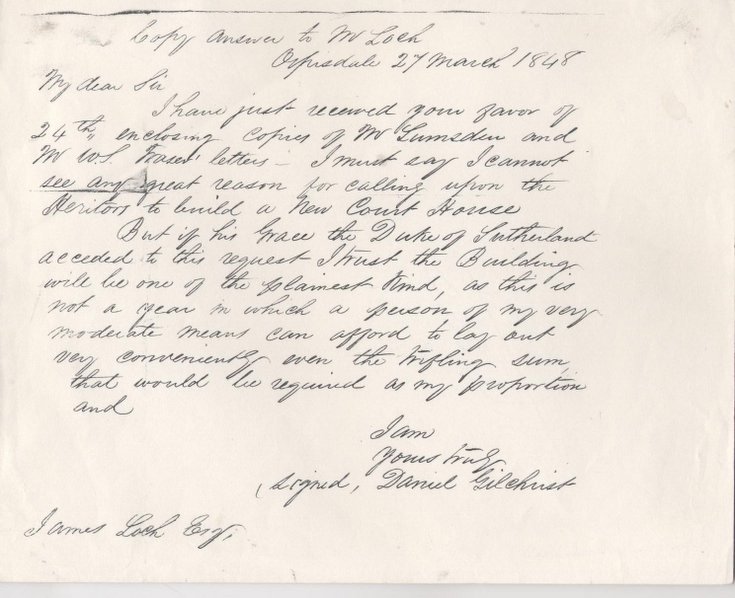 Copy Answer to Mr Loch
Ospisdale 27 March 1848
My dear Sir
I have just received your favor of
24th,, enclosing copies of Mr Lumsden and
Mr WS. Fraser' letters – I must say I cannot
see any great reason for calling upon the
Heritors to build a New Court House
But if his Grace the Duke of Sutherland
acceded to this request I trust the Building
will be one of the plainest kind, as this is
not a year in which a person of my very
moderate means can afford to lay out
very conveniently even the trifling sum,
that would be required as my proportion
and
I am
Yours truly
(signed, Daniel Gilchrist
James Loch Esq,